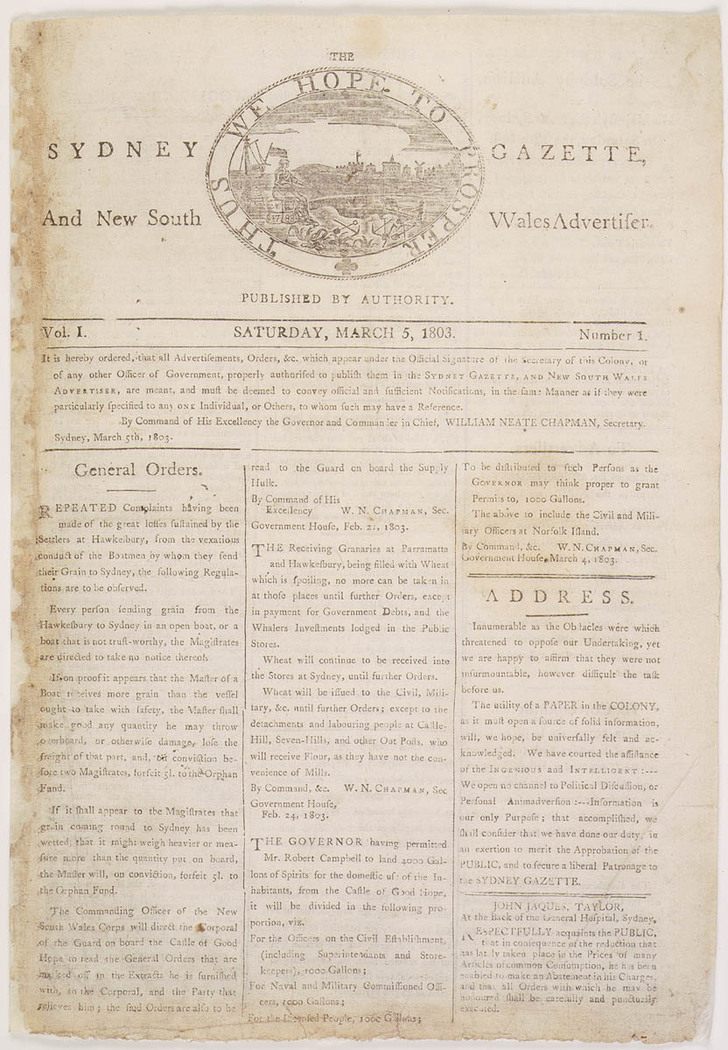 THE
THUS WE HOPE TO PROSPER
SYDNEY GAZETTE,
And New South Wales Advertiſer.
PUBLISHED BY AUTHORITY.
Vol. I. SATURDAY, MARCH 5, 1803. Number 1.
It is hereby ordered, that all Advertiſements, Orders, &c. which appear under the Official Signature of the Secretary of this Colony, or
of any other Officer of Government, properly authoriſed to publiſh them in the SYDNEY GAZETTE, AND NEW SOUTH WALES
ADVERTISER, are meant, and muſt be deemed to convey official and ſufficient Notifications, in the ſame Manner as if they were
particularly ſpecified to any ONE Individual, or Others, to whom ſuch may have a Reference.
By Command of His Excellency the Governor and Commander in Chief, WILLIAM NEATE CHAPMAN, Secretary.
Sydney, March 5th, 1803.
General Orders.
REPEATED Complaints having been
made of the great loſſes ſuſtained by the
Settlers at Hawkeſbury, from the vexatious
conduct of the Boatmen by whom they ſend
their Grain to Sydney, the following Regula-
tions are to be obſerved.
Every perſon ſending grain from the
Hawkeſbury to Sydney in an open boat, or a
boat that is not truſt-worthy, the Magiſtrates
are directed to take no notice thereof.
If on proof it appears that the Maſter of a
Boat receives more grain than the veſſel
ought to take with ſafety, the Maſter ſhall
make good any quantity he may throw
overboard, or otherwiſe damage, loſe the
freight of that part, and, on conviction be-
fore two Magiſtrates, forfeit 5l. to the Orphan
Fund.
If it ſhall appear to the Magiſtrates that
grain coming round to Sydney has been
wetted, that it might weigh heavier or mea-
ſure more than the quantity put on board,
the Maſter will, on conviction, forfeit 5l. to
the Orphan Fund.
The Commanding Officer of the New
South Wales Corps will direct the Corporal
of the Guard on board the Caſtle of Good
Hope to read the General Orders that are
marked off in the Extracts he is furniſhed
with, to the Corporal, and the Party that
relieves him; the ſaid Orders are alſo to be
read to the Guard on board the Supply
Hulk.
By Command of His
Excellency W. N. CHAPMAN, Sec.
Government Houſe, Feb. 21, 1803.
THE Receiving Granaries at Parramatta
and Hawkeſbury, being filled with Wheat
which is ſpoiling, no more can be taken in
at thoſe places until further Orders, except
in payment for Government Debts, and the
Whalers Inveſtments lodged in the Public
Stores.
Wheat will continue to be received into
the Stores at Sydney, until further Orders.
Wheat will be iſſued to the Civil, Mili-
tary, &c. until further Orders; except to the
detachments and labouring people at Caſtle-
Hill, Seven-Hills, and other Out Poſts, who
will receive Flour, as they have not the con-
venience of Mills.
By Command, &c. W. N. CHAPMAN, Sec
Government Houſe,
Feb. 24, 1803.
THE GOVERNOR having permitted
Mr. Robert Campbell to land 4000 Gal-
lons of Spirits for the domeſtic uſe of the In-
habitants, from the Caſtle of Good Hope,
it will be divided in the following pro-
portion, viz.
For the Officers on the Civil Eſtabliſhment,
(including Superintendants and Store-
keepers), 1000 Gallons;
For Naval and Military Commiſſioned Offi-
cers, 1000 Gallons;
For the Licenſed People, 1000 Gallons;
To be diſtributed to ſuch Perſons as the
GOVERNOR may think proper to grant
Permits to, 1000 Gallons.
The above to include the Civil and Mili-
tary Officers at Norfolk Iſland.
By Command, &c. W. N. CHAPMAN, Sec.
Government Houſe, March 4, 1803.
ADDRESS.
Innumerable as the Obſtacles were which
threatened to oppoſe our Undertaking, yet
we are happy to affirm that they were not
inſurmountable, however difficult the taſk
before us.
The utility of a PAPER in the COLONY,
as it muſt open a ſource of ſolid information,
will, we hope, be univerſally felt and ac-
knowledged. We have courted the aſſiſtance
of the INGENIOUS and INTELLIGENT:---
We open no channel to Political Diſcuſſion, or
Perſonal Animadverſion:---Information is
our only Purpoſe; that accompliſhed, we
ſhall conſider that we have done our duty, in
an exertion to merit the Approbation of the
PUBLIC, and to ſecure a liberal Patronage to
the SYDNEY GAZETTE.
JOHN JAQUES, TAYLOR,
At the Back of the General Hoſpital, Sydney,
RESPECTFULLY acquaints the PUBLIC,
that in conſequence of the reduction that
has lately taken place in the Prices of many
Articles of common Conſumption, he has been
enabled to make an Abatement in his Charges,
and that all Orders with which he may be
honoured ſhall be carefully and punctually
executed.